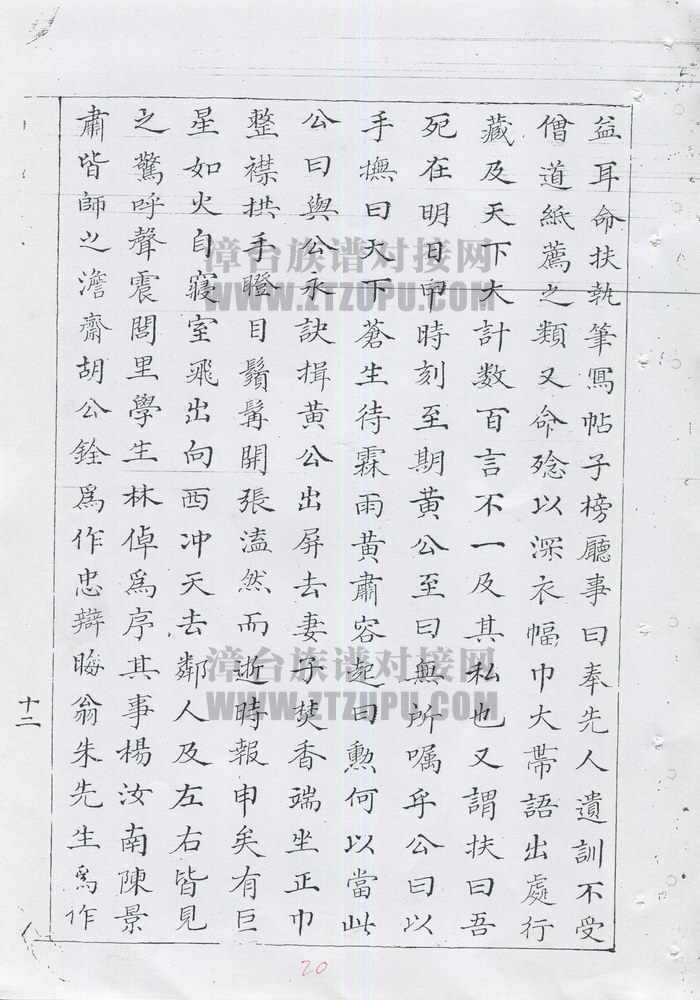 益耳命扶執筆寫帖子榜廳事曰奉先人遺訓不受
僧道紙薦之類又命殮以深衣幅巾大帶語出處行
藏及天下大計数百言不一及其私也又謂扶曰吾
死在明日申時刻至期黃公至曰無所嘱乎公曰以
手撫曰天下蒼生待霖雨黃肅容起曰勲何以當此
公曰與公永訣揖黃公出屏去妻子焚香端坐正巾
整襟拱手瞪目鬚髯開張溘然而逝時報申矣有巨
星如火自寢室飛出向西冲天去鄰人及左右皆見
之驚呼聲震閭里學生林倬爲序其事楊汝南陳景
肅皆師之澹齋胡公銓爲作忠辯晦翁朱先生爲作
十二
20
漳台族谱对接网
WWW.ZTZUPU.COM
漳台族谱对接网
WWW.ZTZUPU.COM